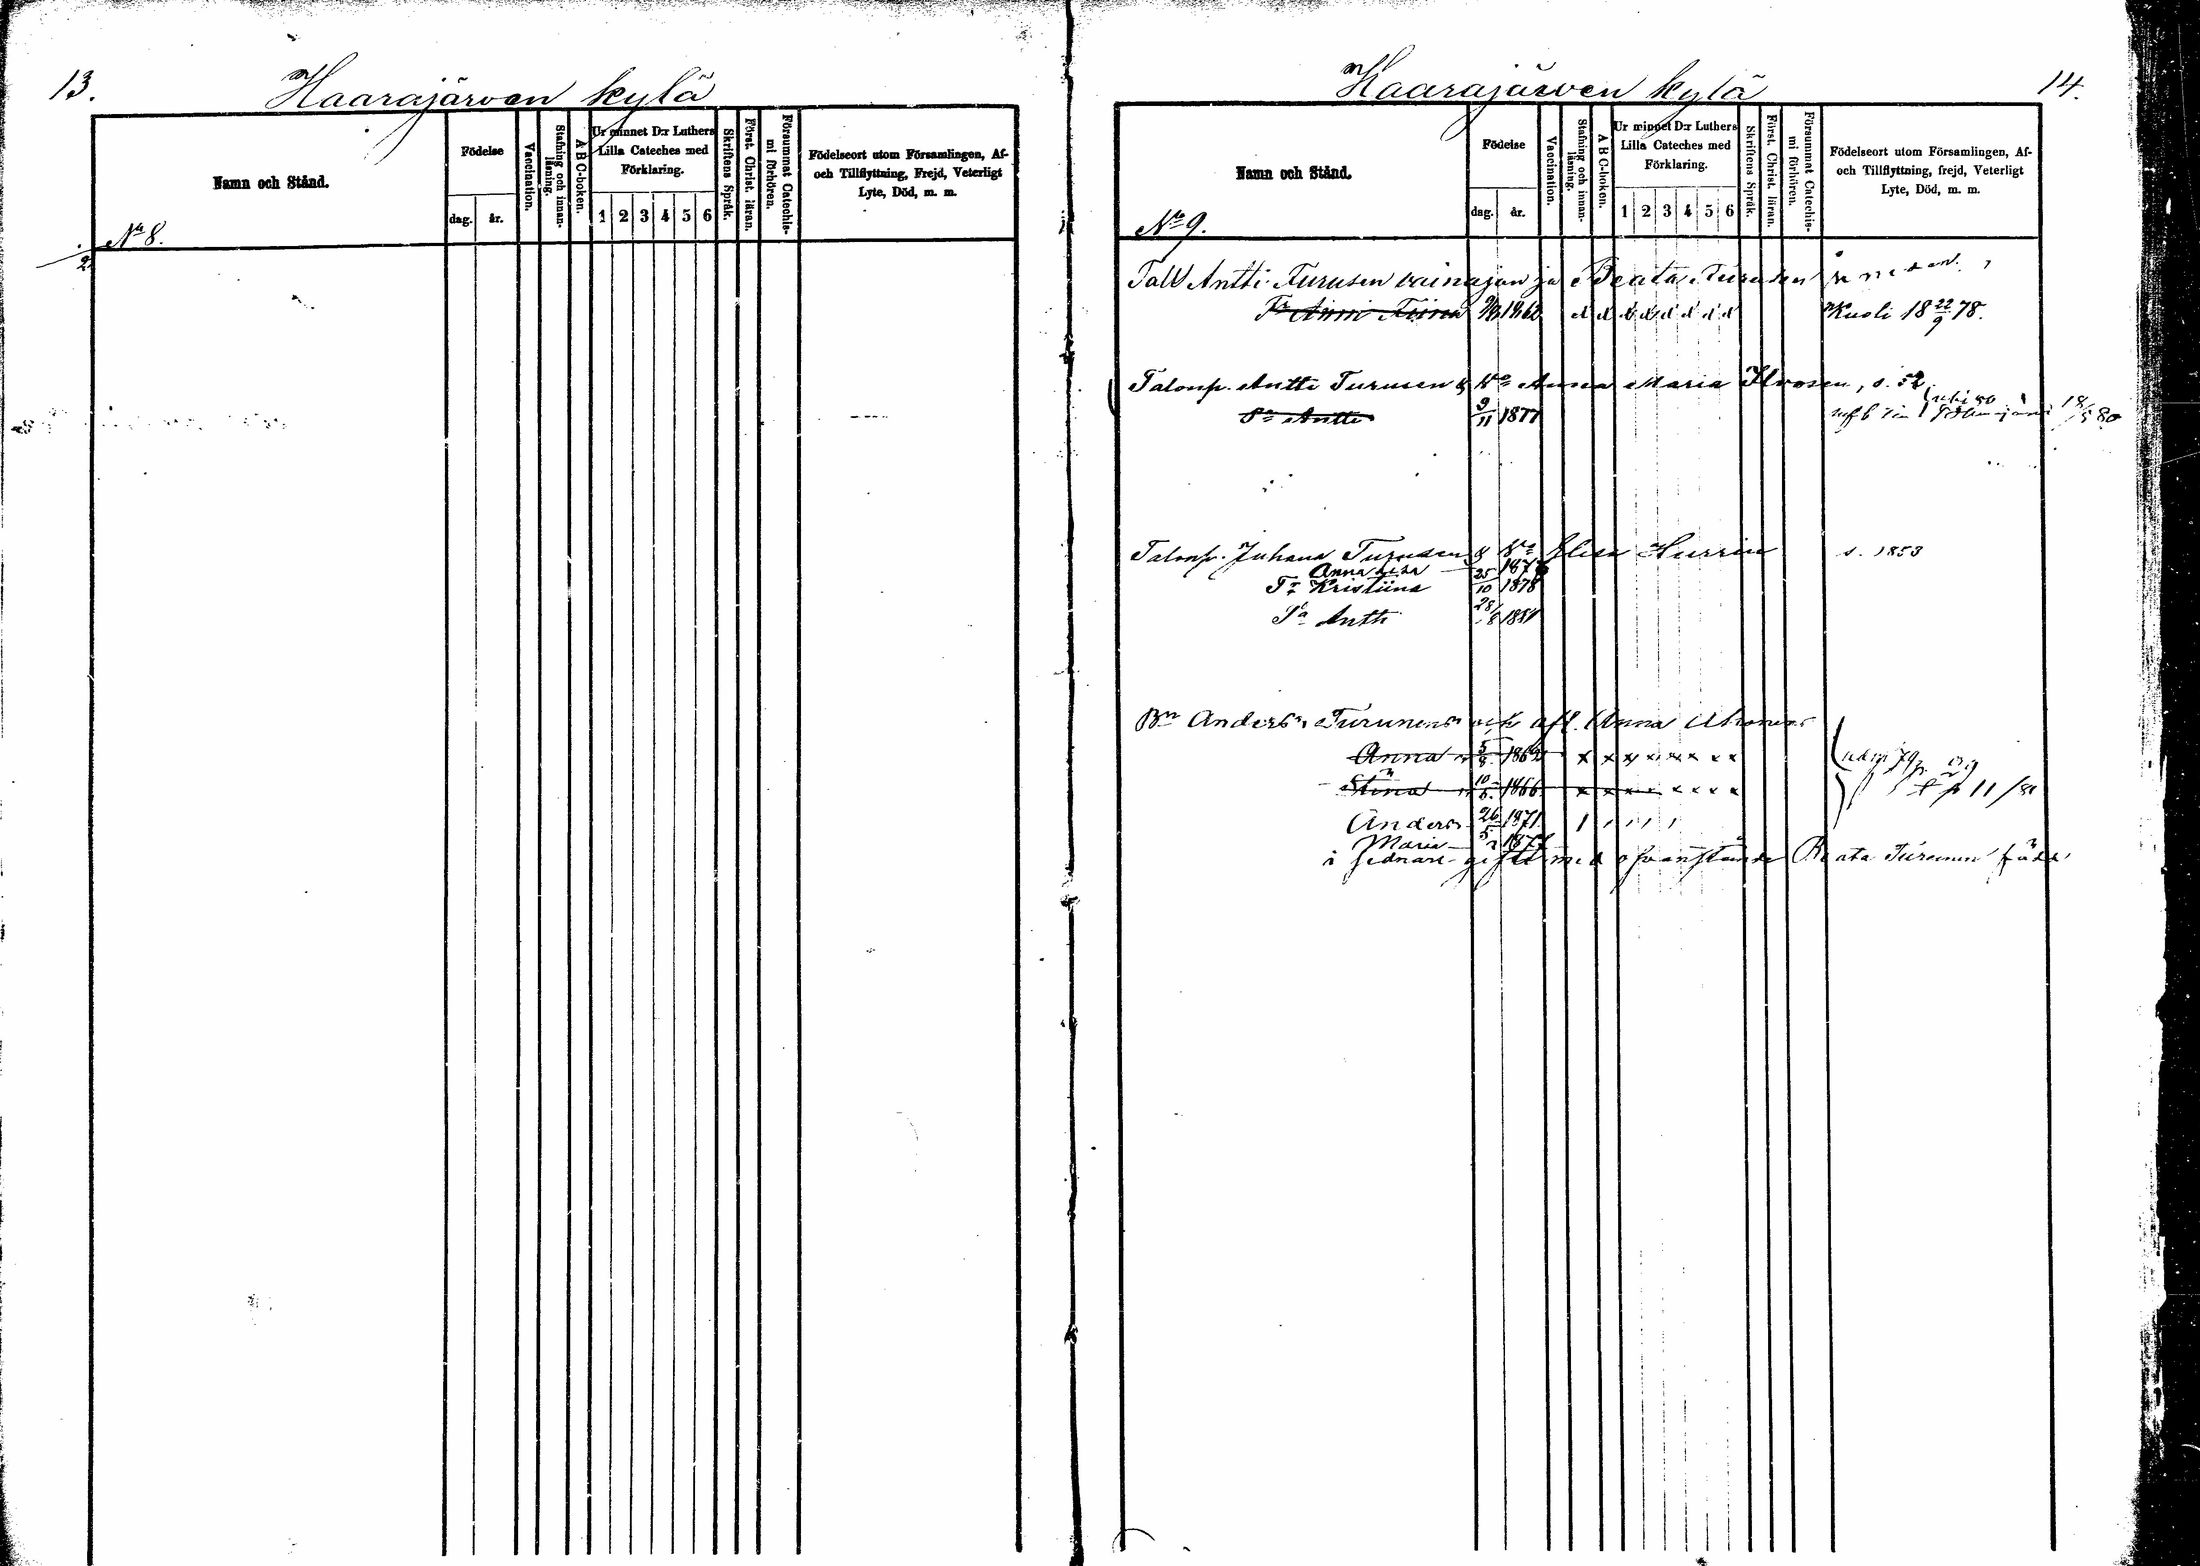 13.
Haarajärven kylä
Namn och Stånd.
Födelse
dag.
år.
Vaccination.
Stafning och innanläsning.
A B C-boken.
Ur minnet D:r Luthers
Lilla Cateches med
Förklaring.
1 2 3 4 5 6
Skriftens Språk.
Först. Christ. läran.
Försummat Catechismi förhören.
Födelseort utom Församlingen, Af-
och Tillflyttning, Frejd, Veterligt
Lyte, Död, m. m.
No 8.
Haarajärven kylä
14.
Namn och Stånd.
Födelse
dag.
år.
Vaccination.
Stafning och innanläsning.
A B C-boken.
Ur minnet D:r Luthers
Lilla Cateches med
Förklaring.
1 2 3 4 5 6
Skriftens Språk.
Först. Christ. läran.
Försummat Catechismi förhören.
Födelseort utom Församlingen, Af-
och Tillflyttning, frejd, Veterligt
Lyte, Död, m. m.
No 9.
Antti Turusen vainajan ja Beata Turusen
Tr Anni Tiina Kuoli 18 22/9 78.
Talonp. Antti Turusen & Anna Maria
Sa Antti 9/11 1877 18/5 80
Talonp. Juhana Turusen & Elisa Hurrin s. 1853
Anna Lisa
Tr Kristiina 25/10 1878
Sa Antti 28/8 1881
Bn Anders Turunens och afl. Anna Ahonens
Anna 5/8 1862 x x x x x x x x
Stina 10/5 1866 x x x x x x x x 11/81
Anders 26/5 1871
Maria
i sednare gifte med ofvanstående Beata Turunen född